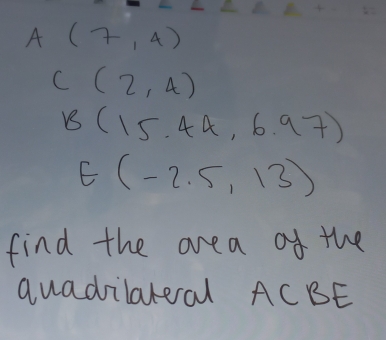 A (7, 4)
C (2, 4)
B (15.44, 6.97)
E (-2.5, 13)
find the area of the
quadrilateral ACBE